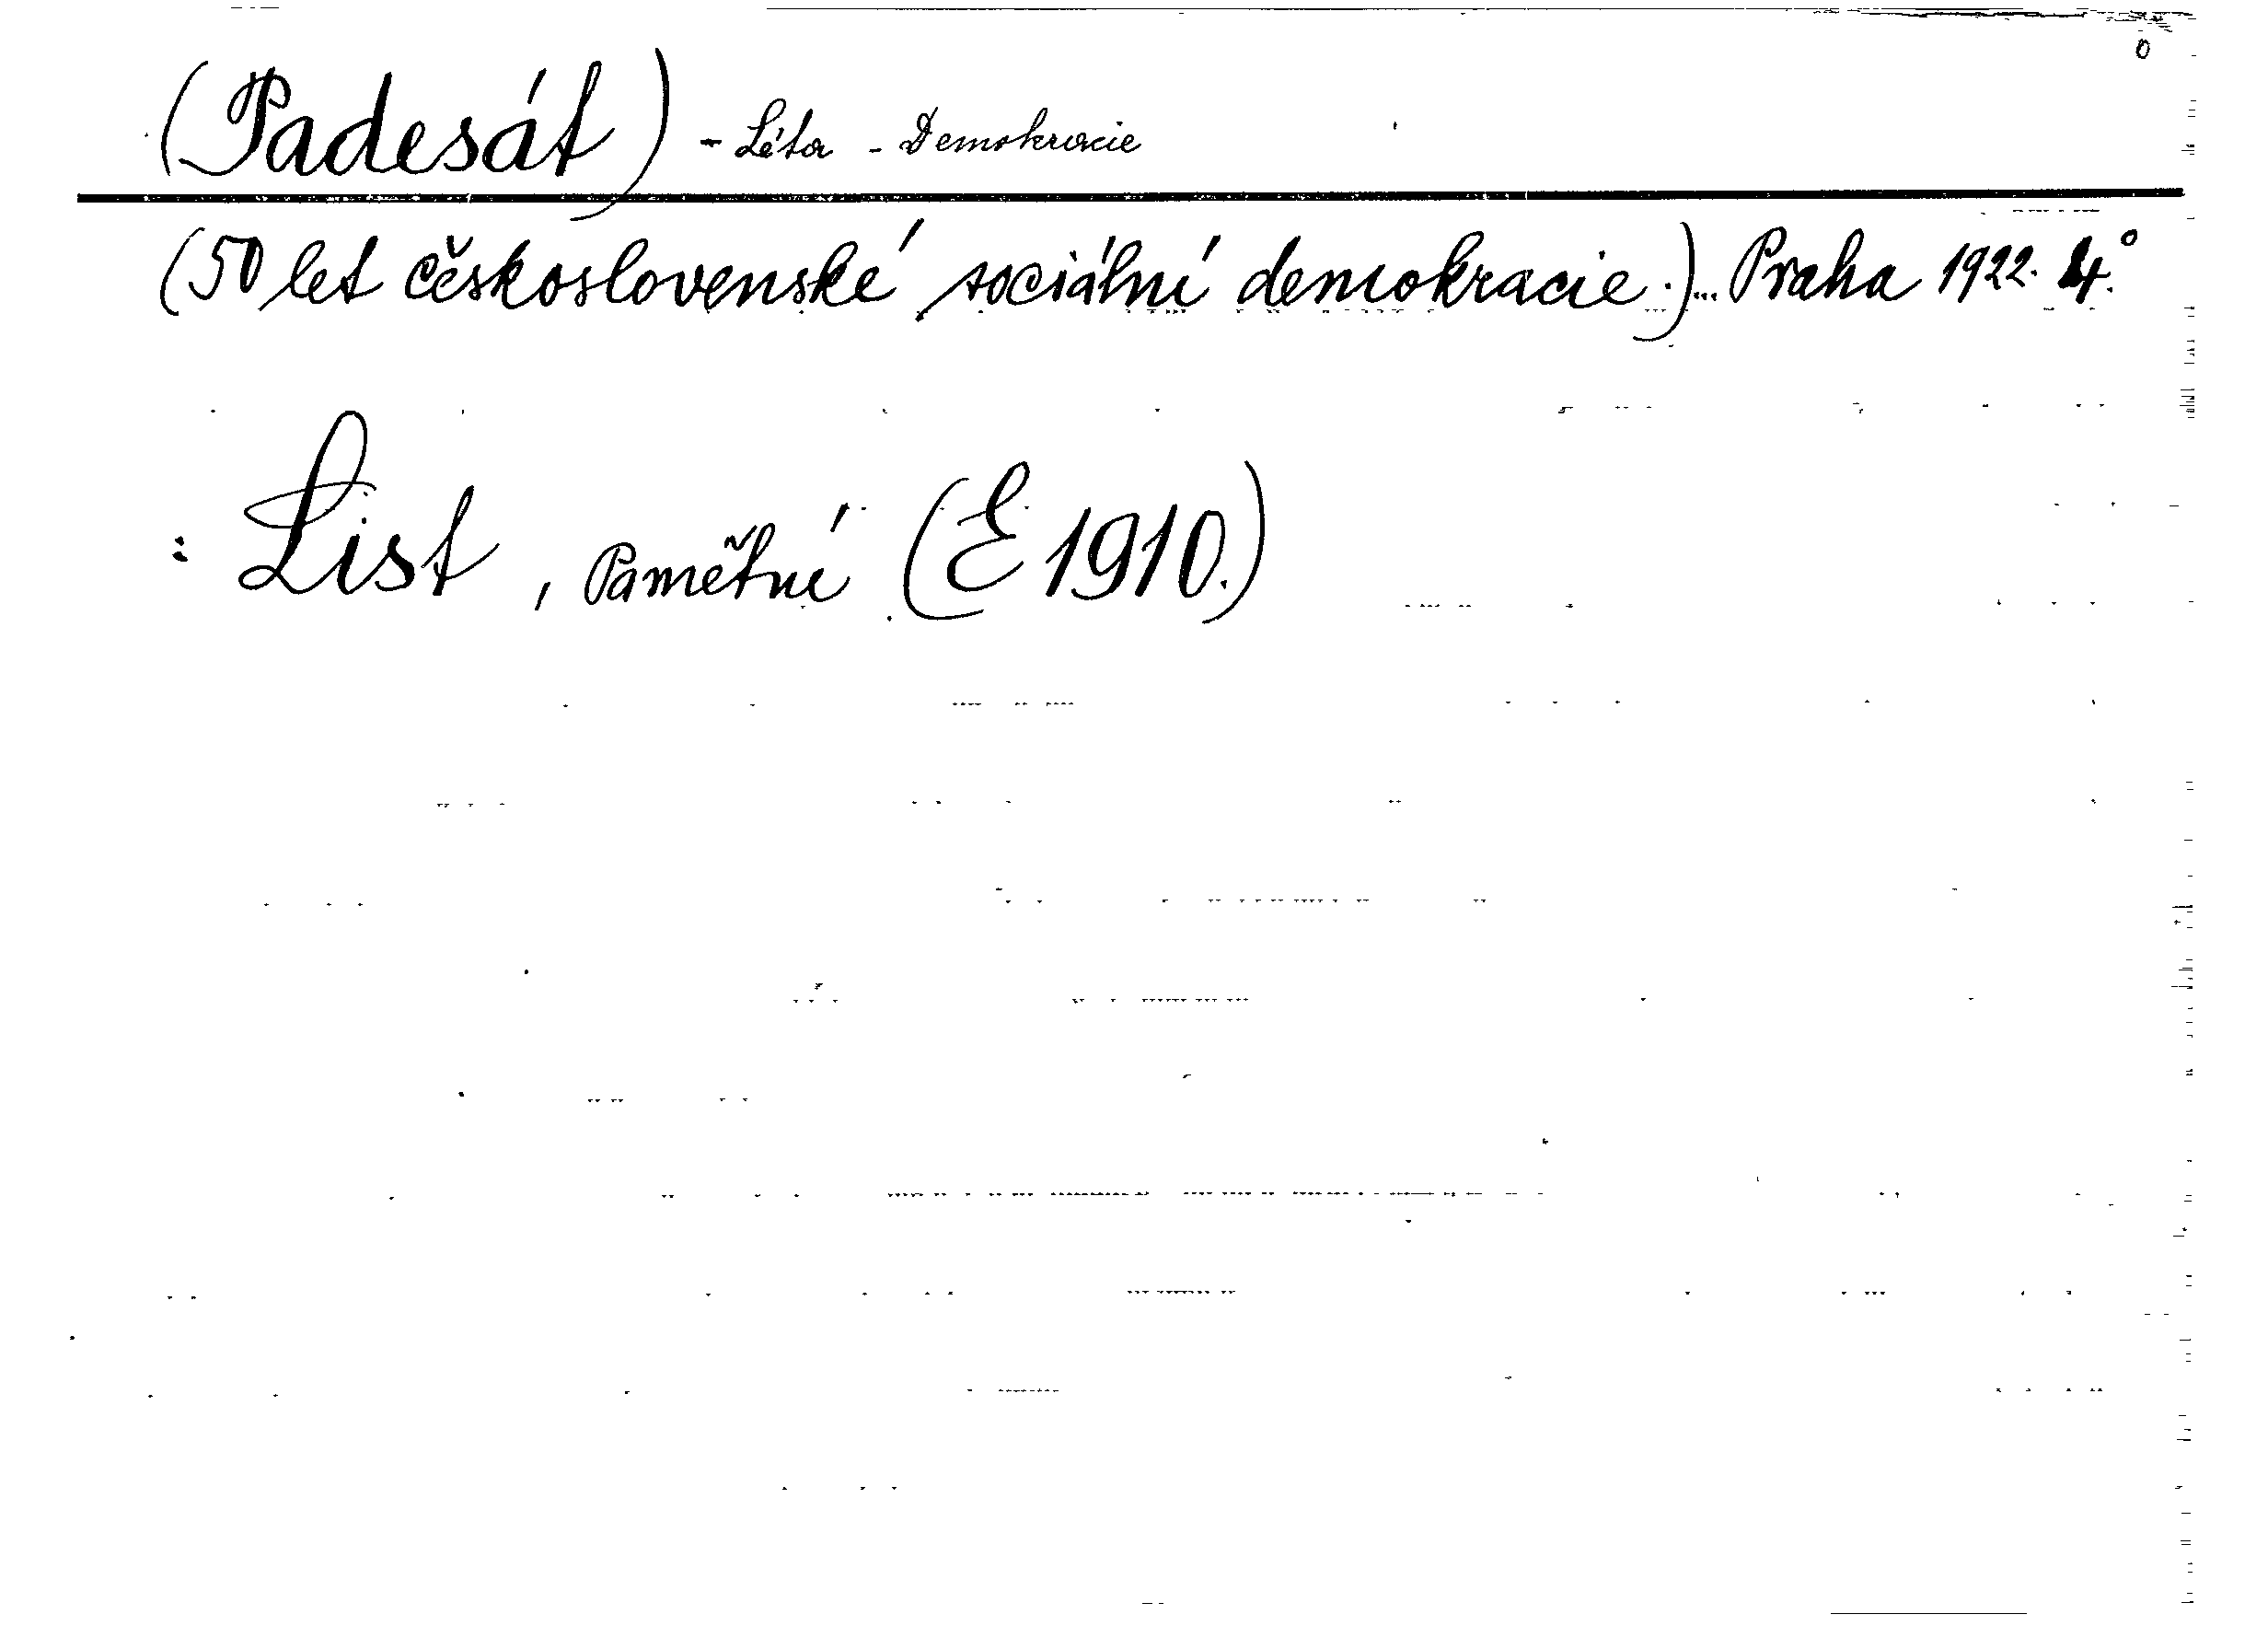 (Padesát) - Léta - Demokracie
(50 let československé sociální demokracie.)... Praha 1922. 4.°
: List, Pamětní (E 1910.)